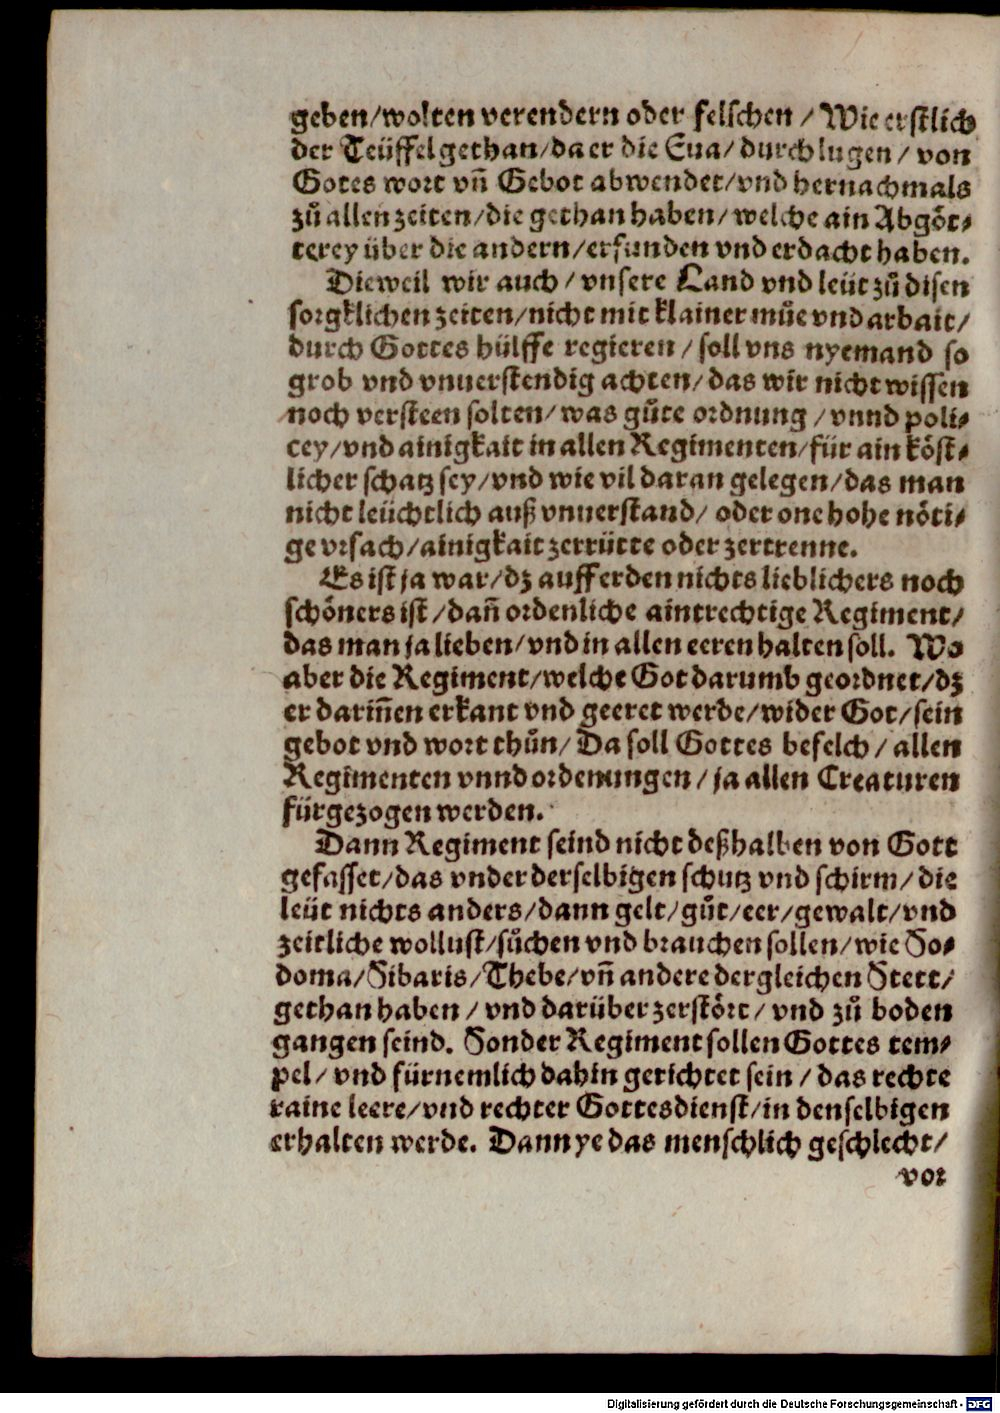 geben/wolten verendern oder felschen / Wie erstlich
der Teüffel gethan/da er die Eua/ durch lugen / von
Gotes wort vñ Gebot abwendet/vnd hernachmals
zů allen zeiten/die gethan haben/ welche ain Abgöt⸗
terey über die andern/erfunden vnd erdacht haben.
Dieweil wir auch / vnsere Land vnd leüt zů disen
sorgklichen zeiten/nicht mit klainer můe vnd arbait/
durch Gottes hülffe regieren / soll vns nyemand so
grob vnd vnuerstendig achten/das wir nicht wissen
noch versteen solten/was gůte ordnung /vnnd poli⸗
cey/vnd ainigkait in allen Regimenten/für ain köst⸗
licher schatz sey/vnd wie vil daran gelegen/das man
nicht leüchtlich auß vnuerstand/ oder one hohe nöti⸗
ge vrsach/ainigkait zerrütte oder zertrenne.
Es ist ja war/dz auff erden nichts lieblichers noch
schöners ist/dañ ordenliche aintrechtige Regiment/
das man ja lieben/vnd in allen eeren halten soll. Wo
aber die Regiment/welche Got darumb geordnet/dz
er dariñen erkant vnd geeret werde/wider Got/sein
gebot vnd wort thůn/ Da soll Gottes befelch / allen
Regimenten vnnd ordenungen /ja allen Creaturen
fürgezogen werden.
Dann Regiment seind nicht deßhalben von Gott
gefasset/das vnder derselbigen schutz vnd schirm/ die
leüt nichts anders/dann gelt/gůt/eer/gewalt/vnd
zeitliche wollust/sůchen vnd brauchen sollen/wie So⸗
doma/Sibaris/Thebe/vñ andere dergleichen Stett/
gethan haben / vnd darüber zerstört/ vnd zů boden
gangen seind. Sonder Regiment sollen Gottes tem⸗
pel/ vnd fürnemlich dahin gerichtet sein / das rechte
raine leere/vnd rechter Gottesdienst/in denselbigen
erhalten werde. Dann ye das menschlich geschlecht/
vor
Digitalisierung gefördert durch die Deutsche Forschungsgemeinschaft - DFG